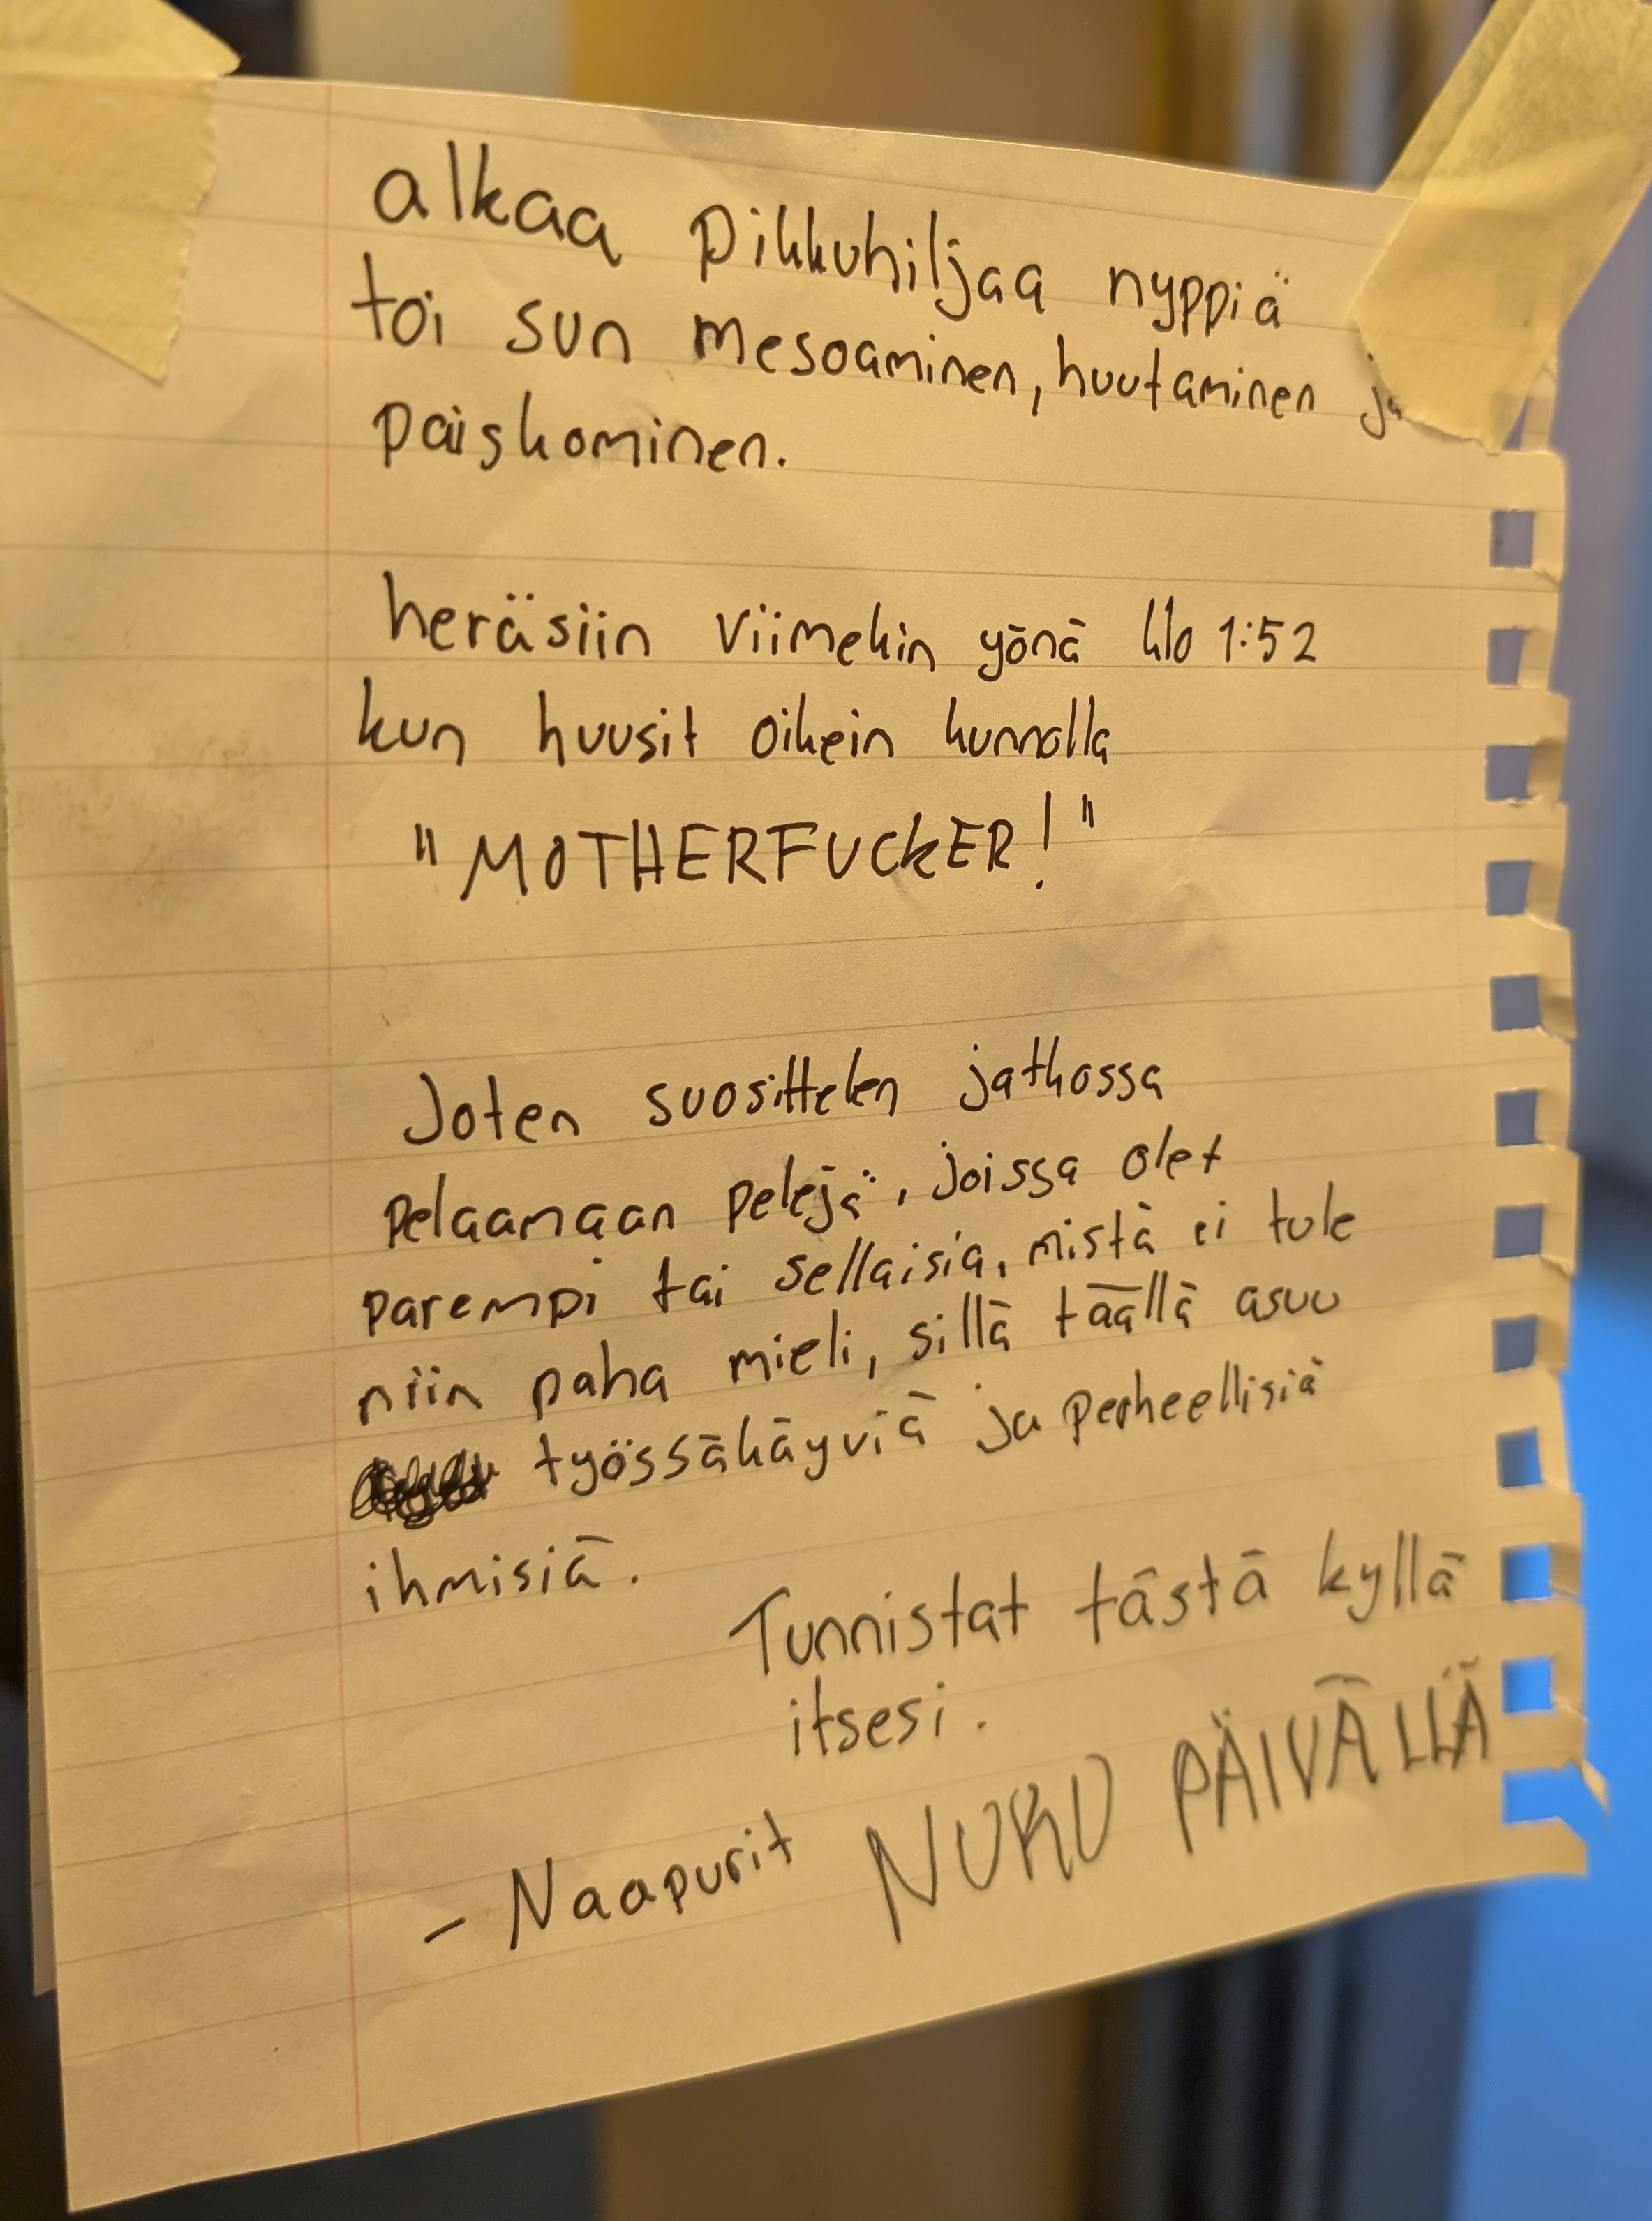 alkaa pikkuhiljaa nyppiä
toi sun mesoaminen, huutaminen ja
paiskominen.
heräsiin viimekin yönä klo 1:52
kun huusit oikein kunnolla
"MOTHERFUCKER!"
Joten suosittelen jatkossa
pelaamaan pelejä, joissa olet
parempi tai sellaisia, mistä ei tule
niin paha mieli, sillä täällä asuu
työssäkäyviä ja perheellisiä
ihmisiä.
Tunnistat tästä kyllä
itsesi.
- Naapurit
NUKU PÄIVÄLLÄ